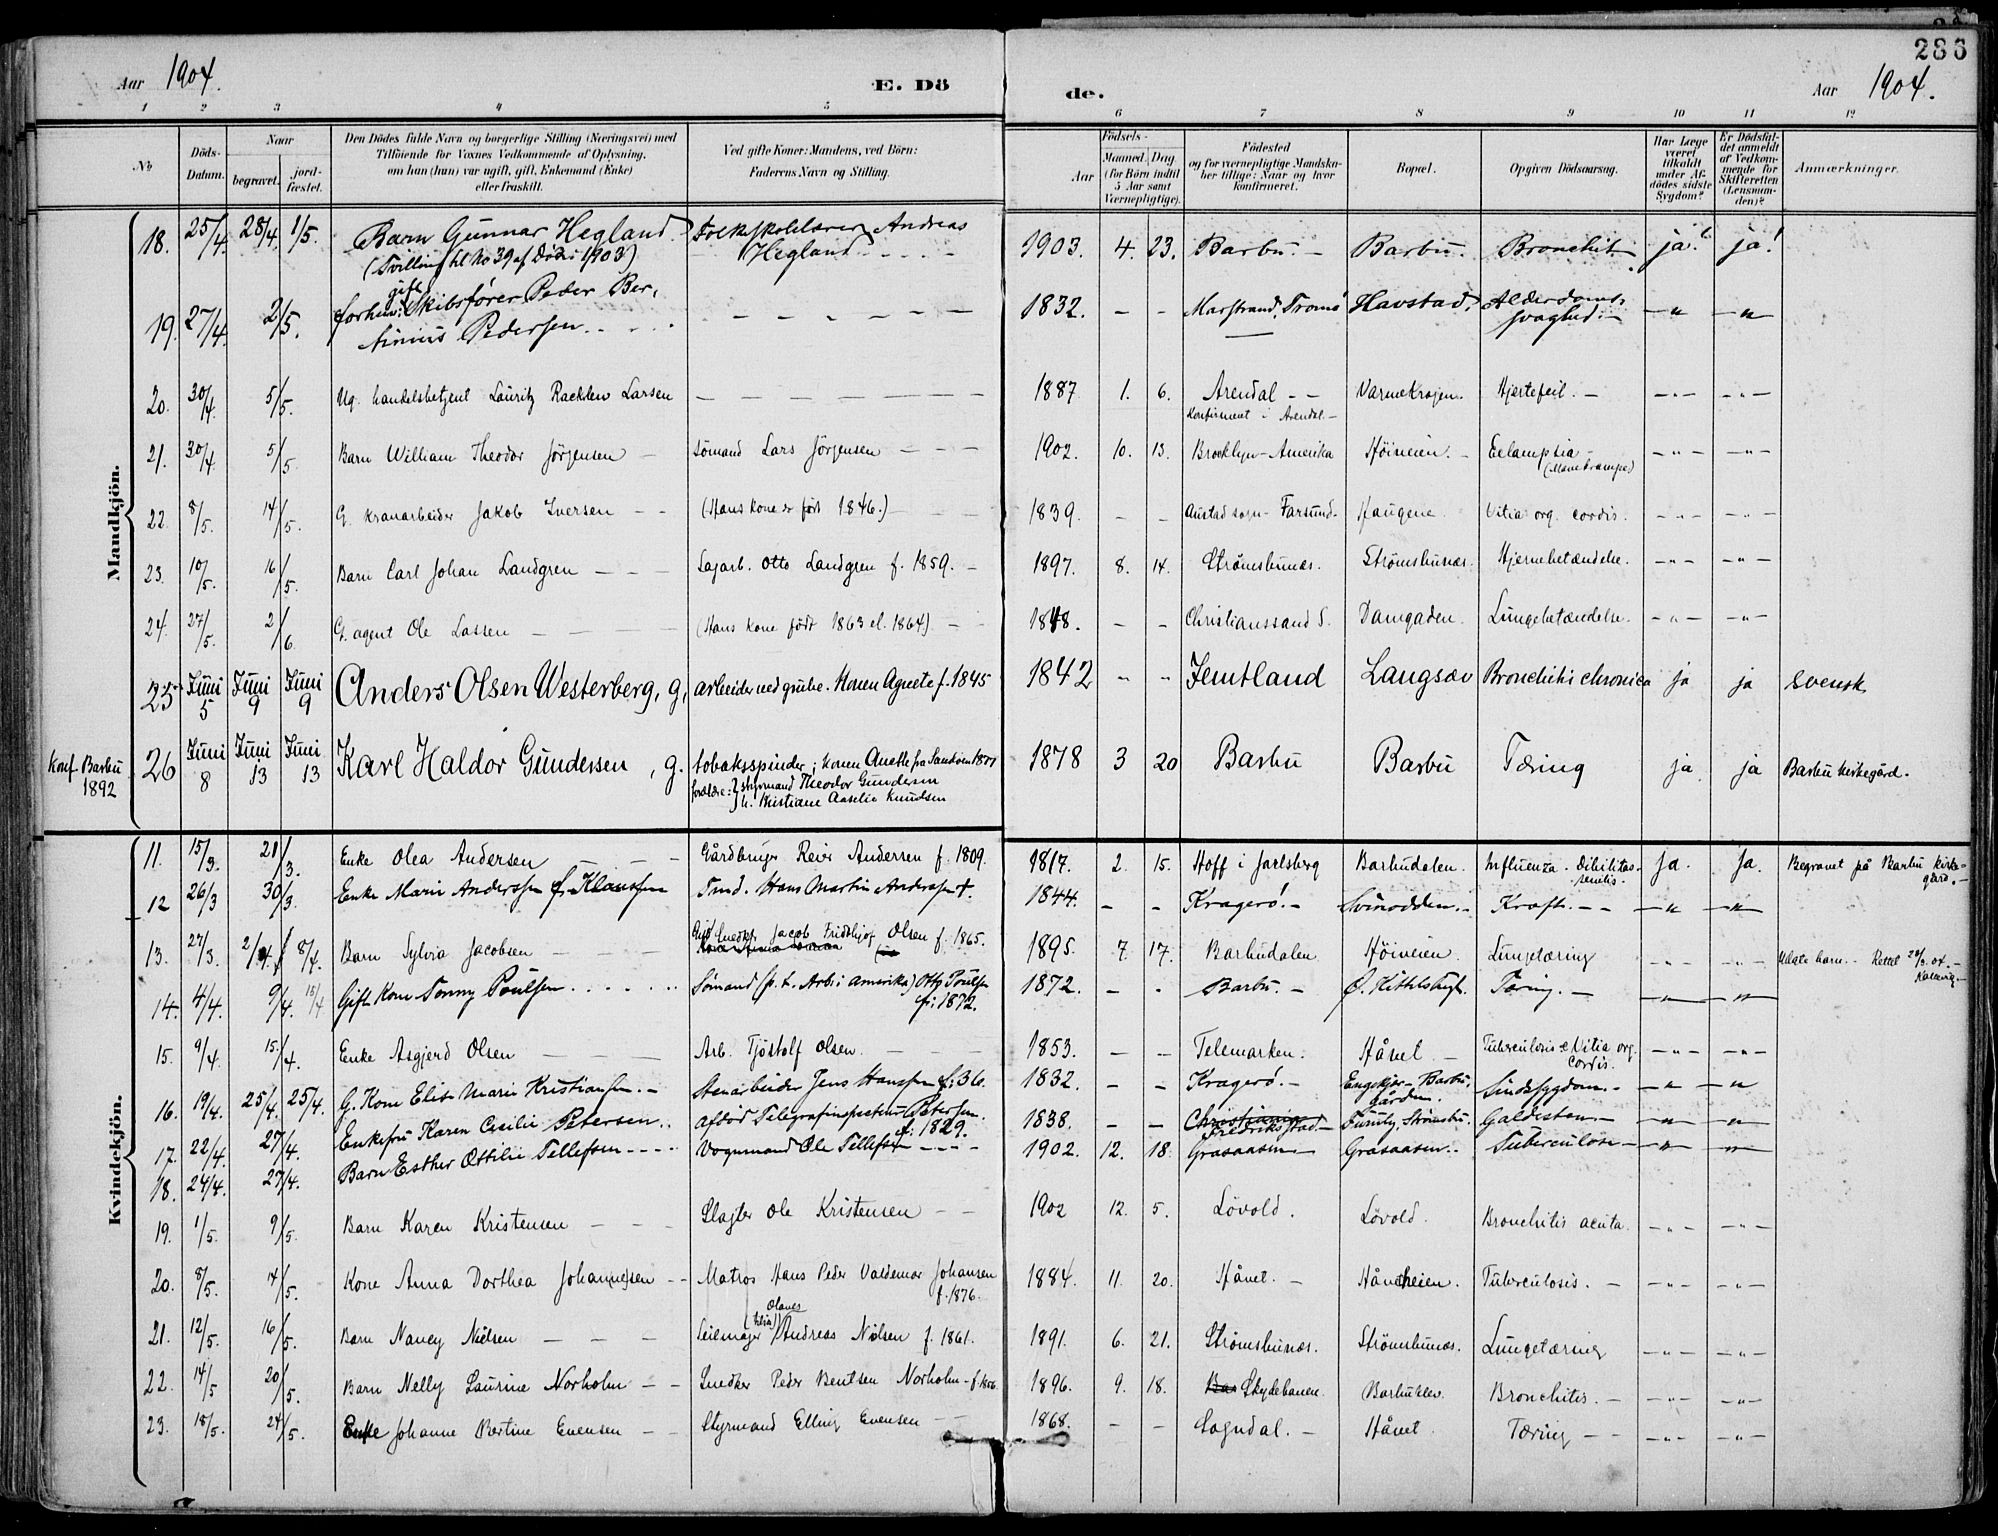 286
Aar 1904.
E. Dö
de.
Aar 1904.
1 2 3 4 5 6 7 8 9 10 11 12
No
Döds-Datum.
Naar
begravet.
jord-fæstet.
Den Dödes fulde Navn og borgerlige Stilling (Næringsvei) med
Tilföiende for Voxnes Vedkommende af Oplysning,
om han (hun) var ugift, gift, Enkemand (Enke)
eller fraskilt.
Ved gifte Koner: Mandens, ved Börn:
Faderens Navn og Stilling.
Födsels-
Aar
Maaned. Dag
(for Börn indtil
5 Aar samt
Værnepligtige).
Födested
og for værnepligtige Mandska-
ber tillige: Naar og hvor
konfirmeret.
Bopæl.
Opgiven Dödsaarsag.
Har Læge
været
tilkaldt
under Af-
dödes sidste
Sygdom?
Er Dödsfal-
det anmeldt
af Vedkom-
mende for
Skifteretten
(Lensman-
den)?
Anmærkninger.
Mandkjön.
18. 25/4. 28/4. 1/5. Barn Gunnar Hegland. Folkeskolelærer Andreas Hegland 1903. 4. 23. Barbu. Barbu. Bronchit. ja! ja!
(Tvilling til No 39 af Döde 1903)
19. 27/4. 2/5. gift forhen: Skibsfører Peder Ber, 1832. - - Marstrand, Tromö Havstad, Alderdoms-
Pedersen svaghed. - " - - " -
20. 30/4. 5/5. Ug. handelsbetjent Lauritz Larsen 1887 1. 6. Arendal Hjertefeil. - " - - " -
Konfirmert i Arendal
21. 30/4 5/5 Barn William Theodor Jörgensen Sömand Lars Jörgensen 1902. 10. 13. Brooklyn - Amerika Höiveien. Eclampsia - " - - " -
22. 8/5. 14/5. G. kranarbeider Jakob Iversen (Hans kone er født 1846.) 1839. - - Austad sogn - Farsund. Haugene. Vitia org. cordis. - " - - " -
23. 10/5. 16/5. Barn Carl Johan Landgren Sagarb. Otto Landgren f. 1859. 1897. 8. 14. Strømsbunæs. Strømsbunæs. Hjernebetændelse. - " - - " -
24. 27/5. 2/6 G. agent Ole Lassen (Hans kone født 1863 el. 1864) 1848. - - Christianssand S. Damgaden. Lungebetændelse. - " - - " -
25 Juni 5 Juni 9 Juni 9 Anders Olsen Westerberg, g, arbeider ved grube. Konen Agnete f. 1845 1842 - - Jemtland Langsæv Bronchitis chronica ja ja svensk
Konf. Barbu 1892 26 Juni 8 Juni 13 Juni 13 Karl Haldor Gundersen, g. tobaksspinder; konen Anette fra 1878 3 20 Barbu Barbu Tæring ja ja Barbu kirkegård.
forældre: styrmand Theodor Gundersen
h. Kristiane Aaselie Knudsen
Kvindekjön.
11. 15/3. 21/3. Enke Olea Andersen Gårdbruger Reier Andersen f. 1809. 1817. 2. 15. Hoff i Jarlsberg Barbudalen. Influenza. Dibilitas senilis. Ja. Ja. Begravet på Barbu kirke-
gård.
12 26/3 30/3. Enke Marie Anderssen f. Klaussen Tmd. Hans Martin Anderssen †. 1844. - - Kragerö! Svinodden. Kræft. - " - - " -
13. 27/3. 2/4. 8/4. Barn Sylvia Jacobsen Snedker Jacob Fridthjof Olsen f. 1865. 1895. 7. 17. Barbudalen Höiveien. Lungetæring - " - - " -
14. 4/4. 9/4. 15/4 Gift Kone Tonny Poulsen Sömand (p. t. Arb. i Amerika) Otto Poulsen f: 1872. 1872. - - Barbu. Ø. Kittelsbugt. Tæring. - " - - " -
15. 9/4. 15/4. Enke Asgjerd Olsen Arb. Tjöstolf Olsen. 1853. - - Telemarken. Hånet. Tuberculosis & Vitia org. cordis. - " - - " -
16. 19/4. 25/4. 25/4. G. Kone Elise Marie Kristiansen Stenarbeider Jens Hanssen f: 36. 1832. - - Kragerö. Engekjær - Barbu, gården. Sindssygdom. - " - - "
17. 22/4. 27/4. Enkefru Karen Cecilie Petersen. afdöd Telegrafinspektør Petersen. f. 1829. 1838. - - Fredriksstad Galdesten - " - - "
18. 24/4. 27/4. Barn Esther Ottilie Tellefsen Vognmand Ole Tellefsen 1902. 12. 18. Grasaasen Grasaasen. Tuberculose - " - - " -
19. 1/5. 9/5. Barn Karen Kristensen Slagter Ole Kristensen 1902 12. 5. Lövold. Lövold. Bronchitis acuta. - " - - " -
20. 8/5. 14/5. Kone Anna Dorthea Johan(ne)sen Matros Hans Peder Valdemar Johansen f. 1876. 1884. 11. 20. Hånet. Håneheien. Tuberculosis. - " - - " -
21. 12/5. 16/5. Barn Nancy Nielsen Seilmager Andreas Nielsen f. 1861. 1891. 6. 21. Strømsbunæs. Strømsbunæs. Lungetæring - " - - " -
22. 14/5 20/5. Barn Nelly Laurine Norholm Snedker Peder Bentsen Norholm f. 1856 1896. 9. 18. Skydebanen. Barbuklev. Bronchitis. - " - - " -
23. 18/5. 24/5. Enke Johanne Bertine Evensen Styrmand Elling Evensen 1868. - - Sogndal. Hånet. Tæring - " - - " -